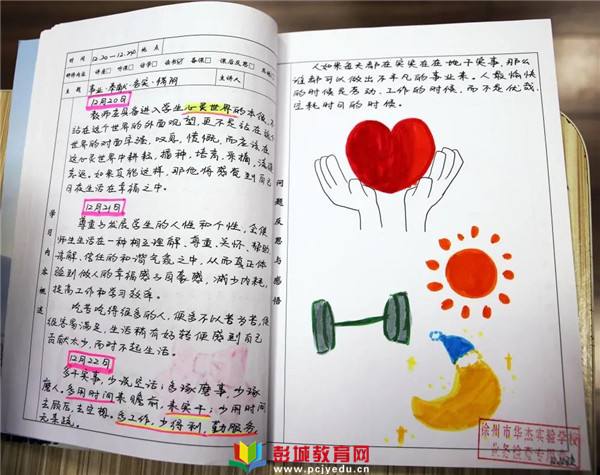 时间 12.20—12.24 地点
研修内容 讲座□ 听课□ 评课□ 读书☑ 备课□ 课后反思□
主题 事业·奉献·务实·勤 主讲人
12月20日
教师要具备进入学生心灵世界的本领,不
站在这个世界的外面观望,更不是站在这个
世界的对面牢骚,叹息,愤慨,而应该在
这心灵世界中耕耘,播种,培育,采摘,流连
忘返。如果真能这样,那他将感觉到自己
日日生活在幸福之中。
12月21日
尊重与发展学生的人性和个性,会使
师生生活在一种相互理解、尊重、关怀、帮助
谅解、信任的和谐气氛之中,从而真正体
验到做人的幸福感与自豪感,减少内耗,
提高工作和学习效率。
吃苦吃得很多的人,便会不以苦为苦,便
很容易满足,生活稍有好转便感到自己
贡献太少,而对不起生活。
12月22日
多干实事,少说空话;多琢磨事,少琢
磨人;多用时间来瞻前,来实干;少用时间
去顾后,去空想。多工作,少得利,勤服务,
学习内容概述
问题反思与感悟
人如果每天都在实实在在地干实事,那么
谁都可以做出不平凡的事业来。人最愉快
的时候是劳动、工作的时候,而不是优哉
空耗时日的时候。
徐州市华杰实验学校
彭城教育网
www.pcjyedu.cn